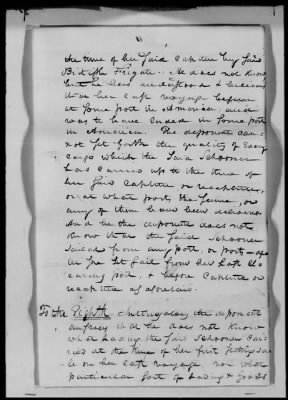 the time of her said capture by said
British Frigate. He does not know
but he has understood & believes
that her last voyage began
at some port in America and
was to have ended in some port
in America. The deponent can-
not set forth the quality of every
cargo which the said Schooner
has carried up to the time of
her said capture or recapture,
or at what ports, the same, or
any of them have been delivered
And he the deponent does not
know that the said Schooner
sailed from any port, or ports
from her last
port, & before capture or
recapture aforesaid.
To the Eighth Interrogatory the deponent
answers that he does not know
what lading the said Schooner car-
ried at the time of her first setting sail
on her last voyage nor what
particular sort of lading & goods